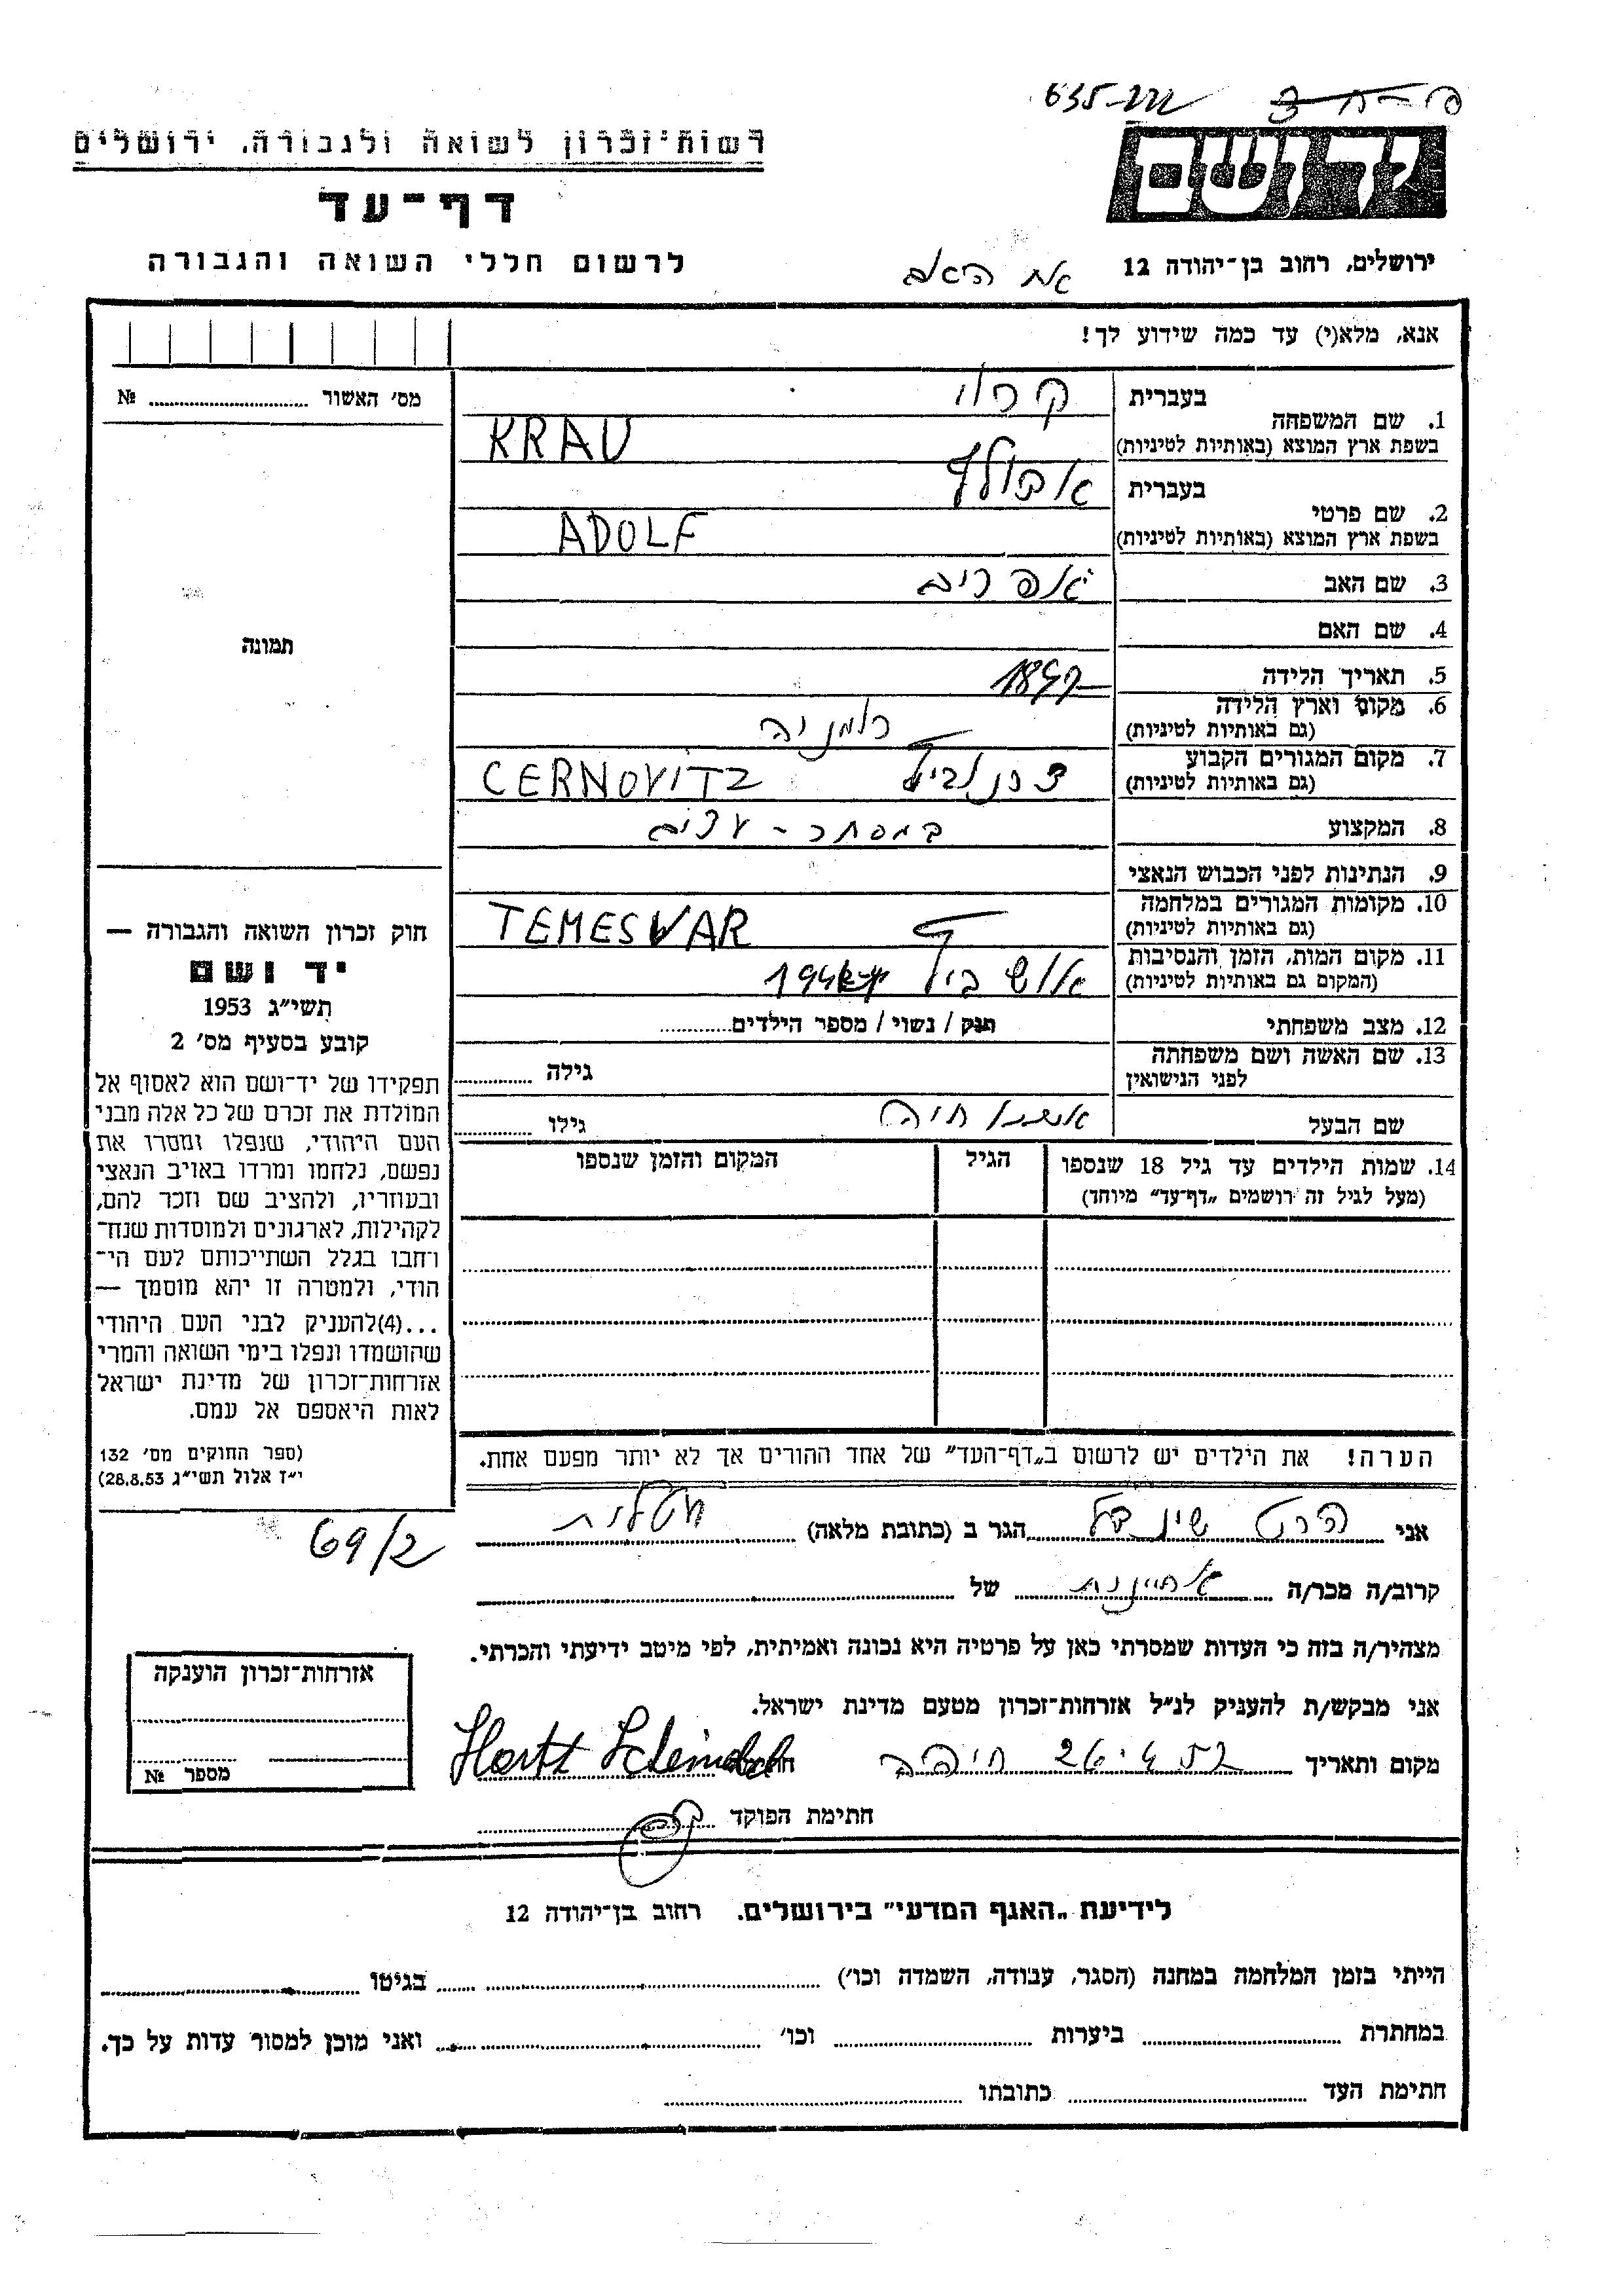 635-222
רשות־זכרון לשואה ולגבורה, ירושלים
יד ושם
דף־עד
לרשום חללי השואה והגבורה
ירושלים, רחוב בן־יהודה 12
אח האם
אנא, מלא(י) עד כמה שידוע לך!
מס׳ האשור № 
1. שם המשפחה
בעברית
קראו
בשפת ארץ המוצא (באותיות לטיניות)
KRAU
2. שם פרטי
בעברית
אדולף
בשפת ארץ המוצא (באותיות לטיניות)
ADOLF
3. שם האב
אפרים
4. שם האם
5. תאריך הלידה
6. מקום וארץ הלידה
(גם באותיות לטיניות)
רומניה
7. מקום המגורים הקבוע
(גם באותיות לטיניות)
צרנוביץ CERNOVITZ
8. המקצוע
במסחר - עצים
9. הנתינות לפני הכבוש הנאצי
10. מקומות המגורים במלחמה
(גם באותיות לטיניות)
TEMESVAR
11. מקום המות, הזמן והנסיבות
(המקום גם באותיות לטיניות)
אושביץ
12. מצב משפחתי
רווק / נשוי / מספר הילדים
13. שם האשה ושם משפחתה
לפני הנישואין
גילה
שם הבעל
גילו
14. שמות הילדים עד גיל 18 שנספו
(מעל לגיל זה רושמים „דף־עד” מיוחד)
הגיל
המקום והזמן שנספו
תמונה
חוק זכרון השואה והגבורה —
יד ושם
תשי״ג 1953
קובע בסעיף מס׳ 2
תפקידו של יד־ושם הוא לאסוף אל
המולדת את זכרם של כל אלה מבני
העם היהודי, שנפלו ומסרו את
נפשם, נלחמו ומרדו באויב הנאצי
ובעוזריו, ולהציב שם וזכר להם,
לקהילות, לארגונים ולמוסדות שנח־
רחבו בגלל השתייכותם לעם הי־
הודי, ולמטרה זו יהא מוסמך —
...(4)להעניק לבני העם היהודי
שהושמדו ונפלו בימי השואה והמרי
אזרחות־זכרון של מדינת ישראל
לאות היאספם אל עמם.
(ספר החוקים מס׳ 132
י״ז אלול תשי״ג 28.8.53)
הערה! את הילדים יש לרשום ב„דף־העד” של אחד ההורים אך לא יותר מפעם אחת.
69/2
אני הרט שינדל הגר ב (כתובת מלאה)
קרוב/ה מכר/ה אחיינית של
מצהיר/ה בזה כי העדות שמסרתי כאן על פרטיה היא נכונה ואמיתית, לפי מיטב ידיעתי והכרתי.
אני מבקש/ת להעניק לנ״ל אזרחות־זכרון מטעם מדינת ישראל.
מקום ותאריך חיפה
חתימת הפוקד
אזרחות־זכרון הוענקה
מספר №
לידיעת „האגף המדעי” בירושלים. רחוב בן־יהודה 12
הייתי בזמן המלחמה במחנה (הסגר, עבודה, השמדה וכו׳) בגיטו
במחתרת ביערות וכו׳ ואני מוכן למסור עדות על כך.
חתימת העד כתובתו